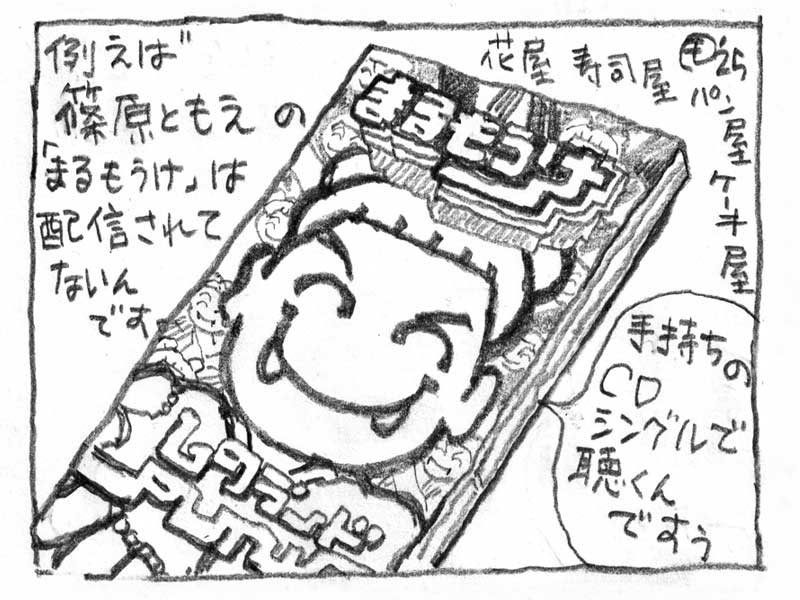 例えば
篠原ともえの
「まるもうけ」は
配信されて
ないん
です
花屋 寿司屋
パン屋
ケーキ屋
も '25
まるもうけ
レクランド
手持ちの
CD
シングルで
聴くん
ですぅ